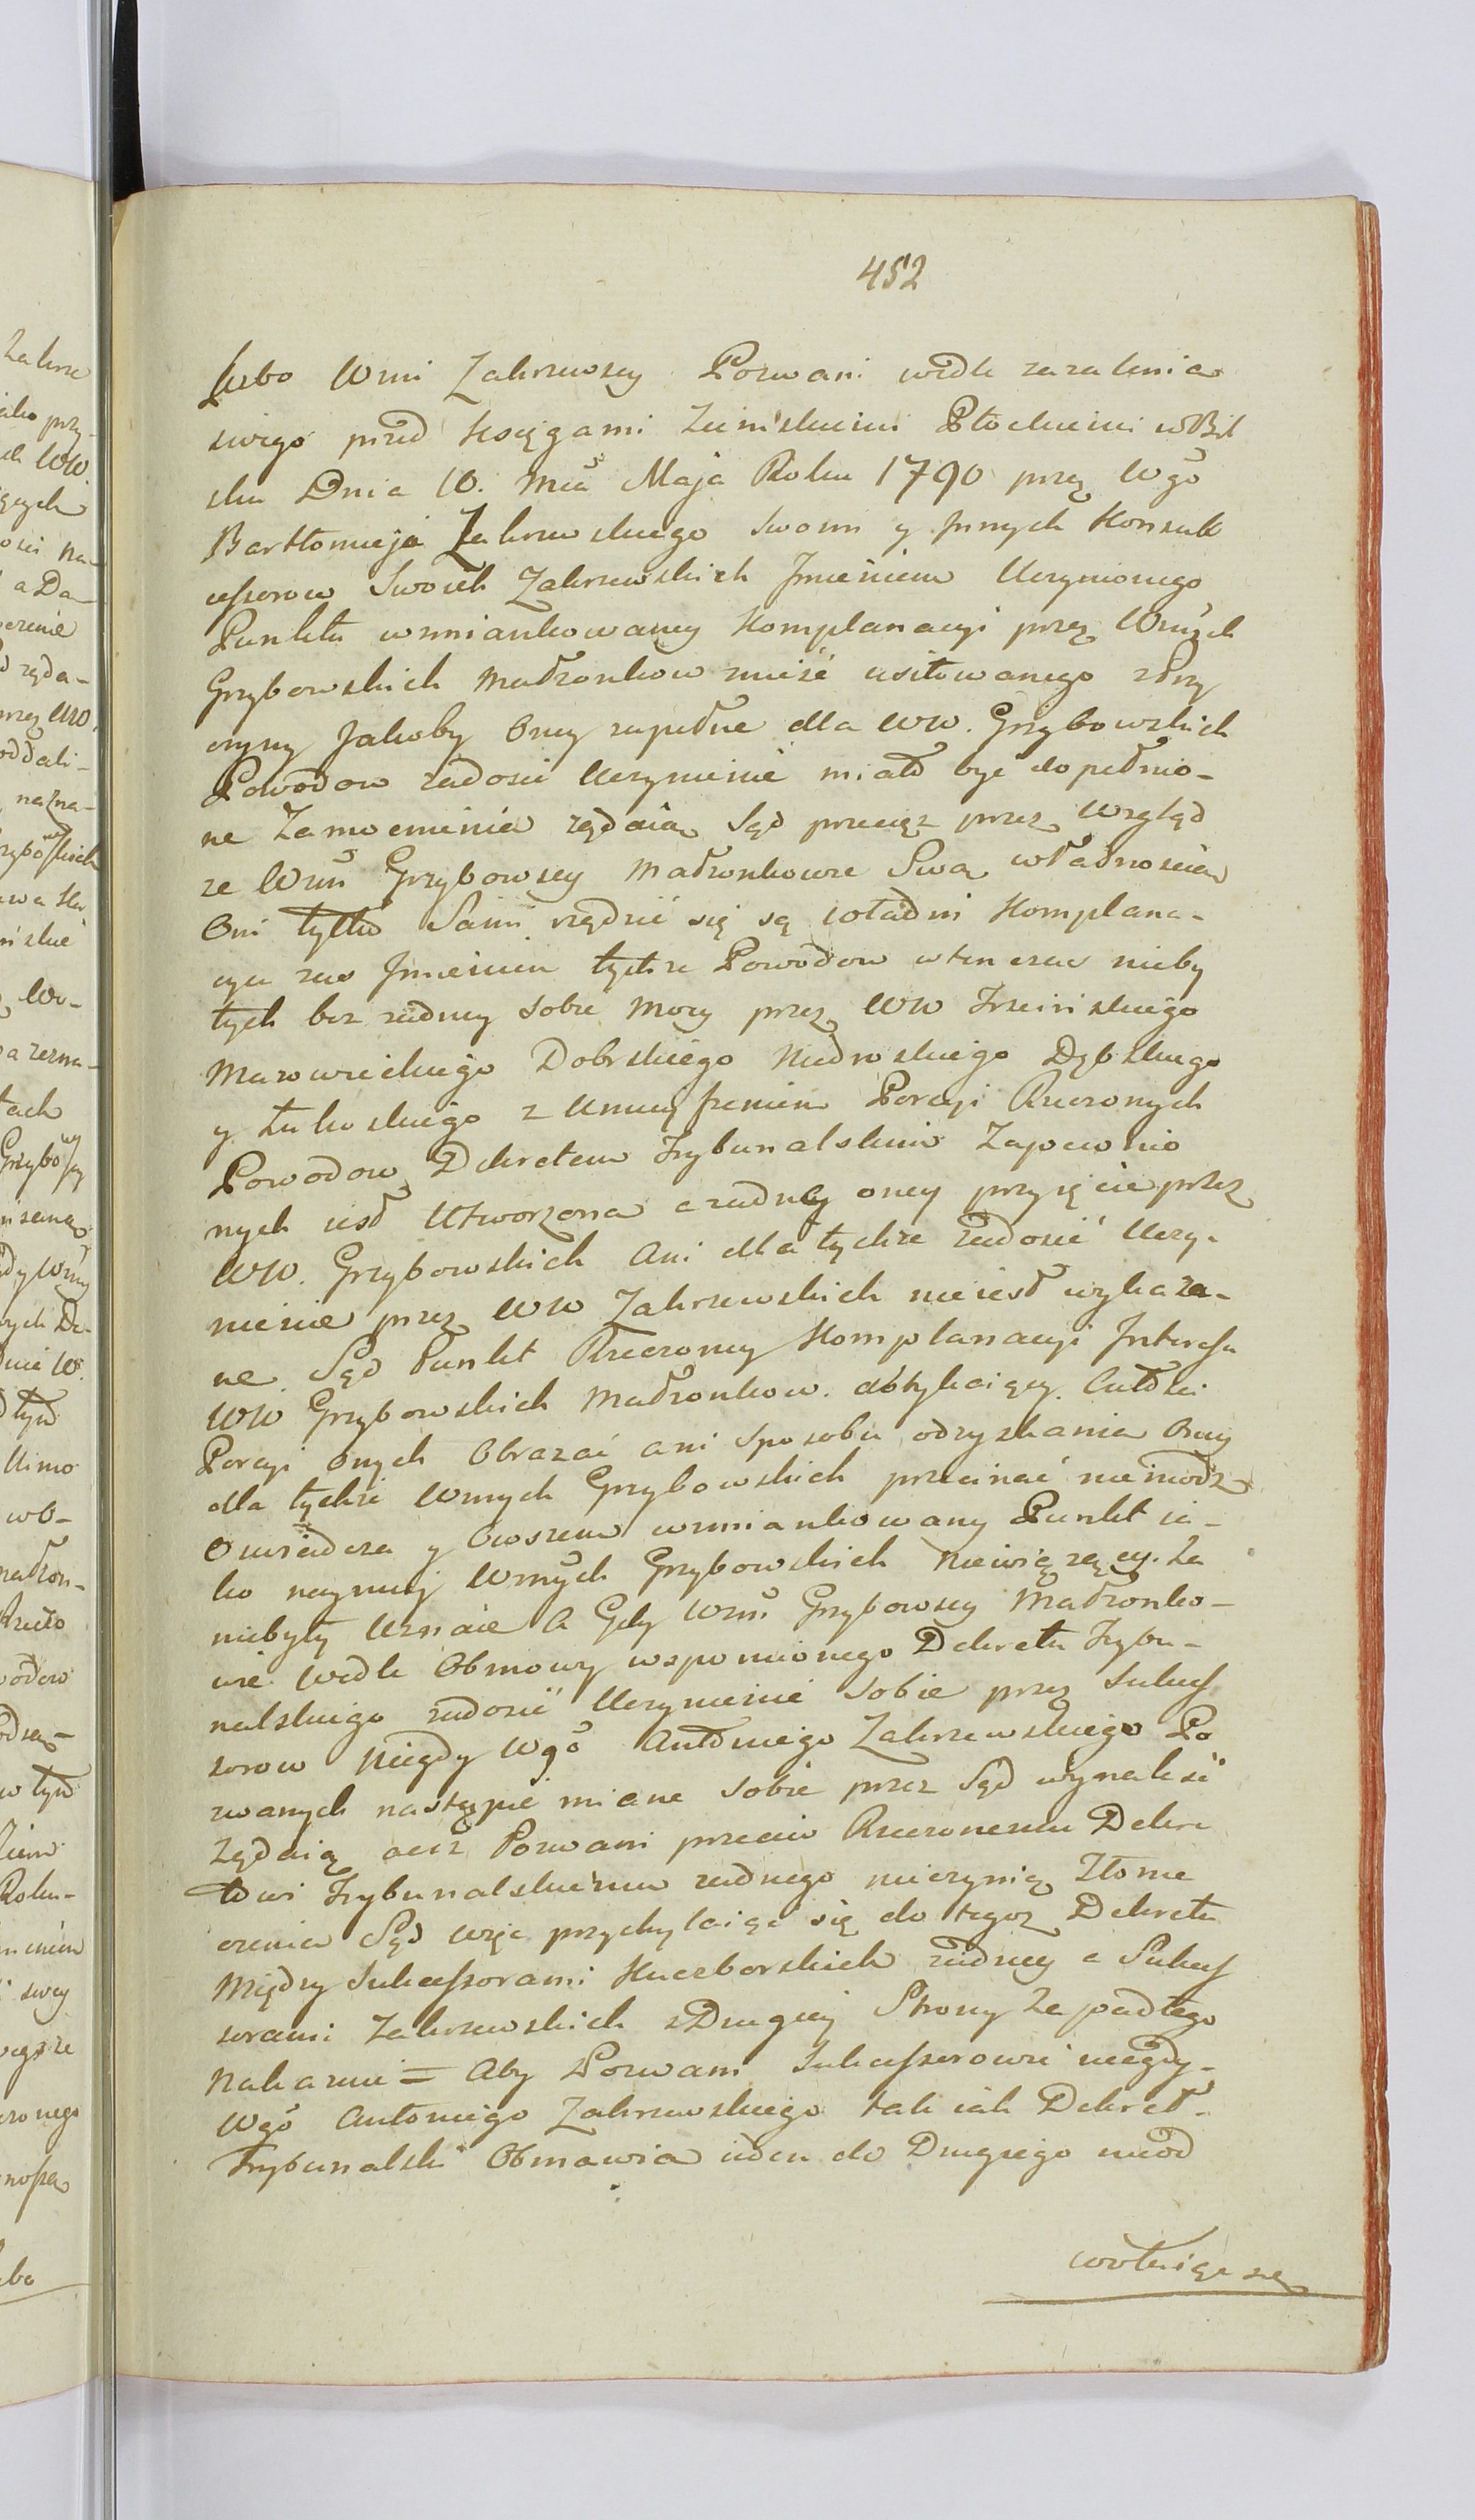 452
Lubo Wmi Zakrzewscy Pozwani wedle zazalenia
swego przed Xsięgami Ziemskiemi Płockiemi w Biel
sku Dnia 10. Mca Maja Roku 1790 przez Wgo
Bartłomieja Zakrzewskiego Swoim y Innych Konsuk
cessorow Swoich Zakrzewskich Imieniem Uczynionego
Punktu wzmiankowaney Komplanacyi przez Wmych
Grzybowskich Małżonkow znieść usiłowanego z Przy
czyny Jakoby Oney zupełne dla WW. Grzybowskich
Powodow zadosić Uczynienie miało być dopełnio-
ne Zamocnienia rządaią Sąd przeciez przez Wzgląd
ze Wmi Grzybowscy Małżonkowie Swą własnoscią
Oni tylko Sami rządzić się są władni Komplana-
cya zas Imieniem tychze Powodow wten czas nieby
łych bez zadney sobie Mocy przez WW Trzcinskiego
Mazowieckiego Dobrskiego Nidrowskiego Dębskiego
y Łukoskiego z Umnieyszeniem Porcyi Rzeczonych
Powodow Dekretem Trybunalskim Zapewnio
nych iest Utworzona a zadney oney przyięcie przez
WW. Grzybowskich Ani dla tychze Zadosić Uczy-
nienie przez WW Zakrzewskich nie iest wykaza-
ne Sąd Punkt Rzeczoney Komplanacyi Interessu
WW Grzybowskich Małżonkow. dotykaiący. Całosci
Porcyi Onych Obrazać ani sposobu odzyskania Oney
dla tychze Wmych Grzybowskich przecinać niemodz
Oswiadcza y Owszem wzmiankowany Punkt ia-
ko naymniey Wmych Grzybowskich Niewiązący. Za
niebyły Uznaie A Gdy Wmi Grzybowscy Małżonko-
wie wedle Obmowy wspomnionego Dekretu Trybu-
nalskiego zadosić Uczynienie Sobie przez Sukces
sorow Niegdy Wgo Antoniego Zakrzewskiego Po
zwanych nastąpić miane Sobie przez Sąd wynaleść
Ządaią acz Pozwani przeciw Rzeczonemu Dekre
towi Trybunalskiemu zadnego nieczynią Zło me
czenia Sąd więc przychylaiąc się do tegoz Dekretu
Między Sukcessorami Kuceborskich zidney a Sukces
sorami Zakrzewskich z Drugiey Strony Zapadłego
Nakazuie = Aby Pozwani Sukcessorowie niegdy-
Wgo Antoniego Zakrzewskiego tak iak Dekret
Trybunalski Obmawia ieden do Drugiego nieod
wołuiąc się